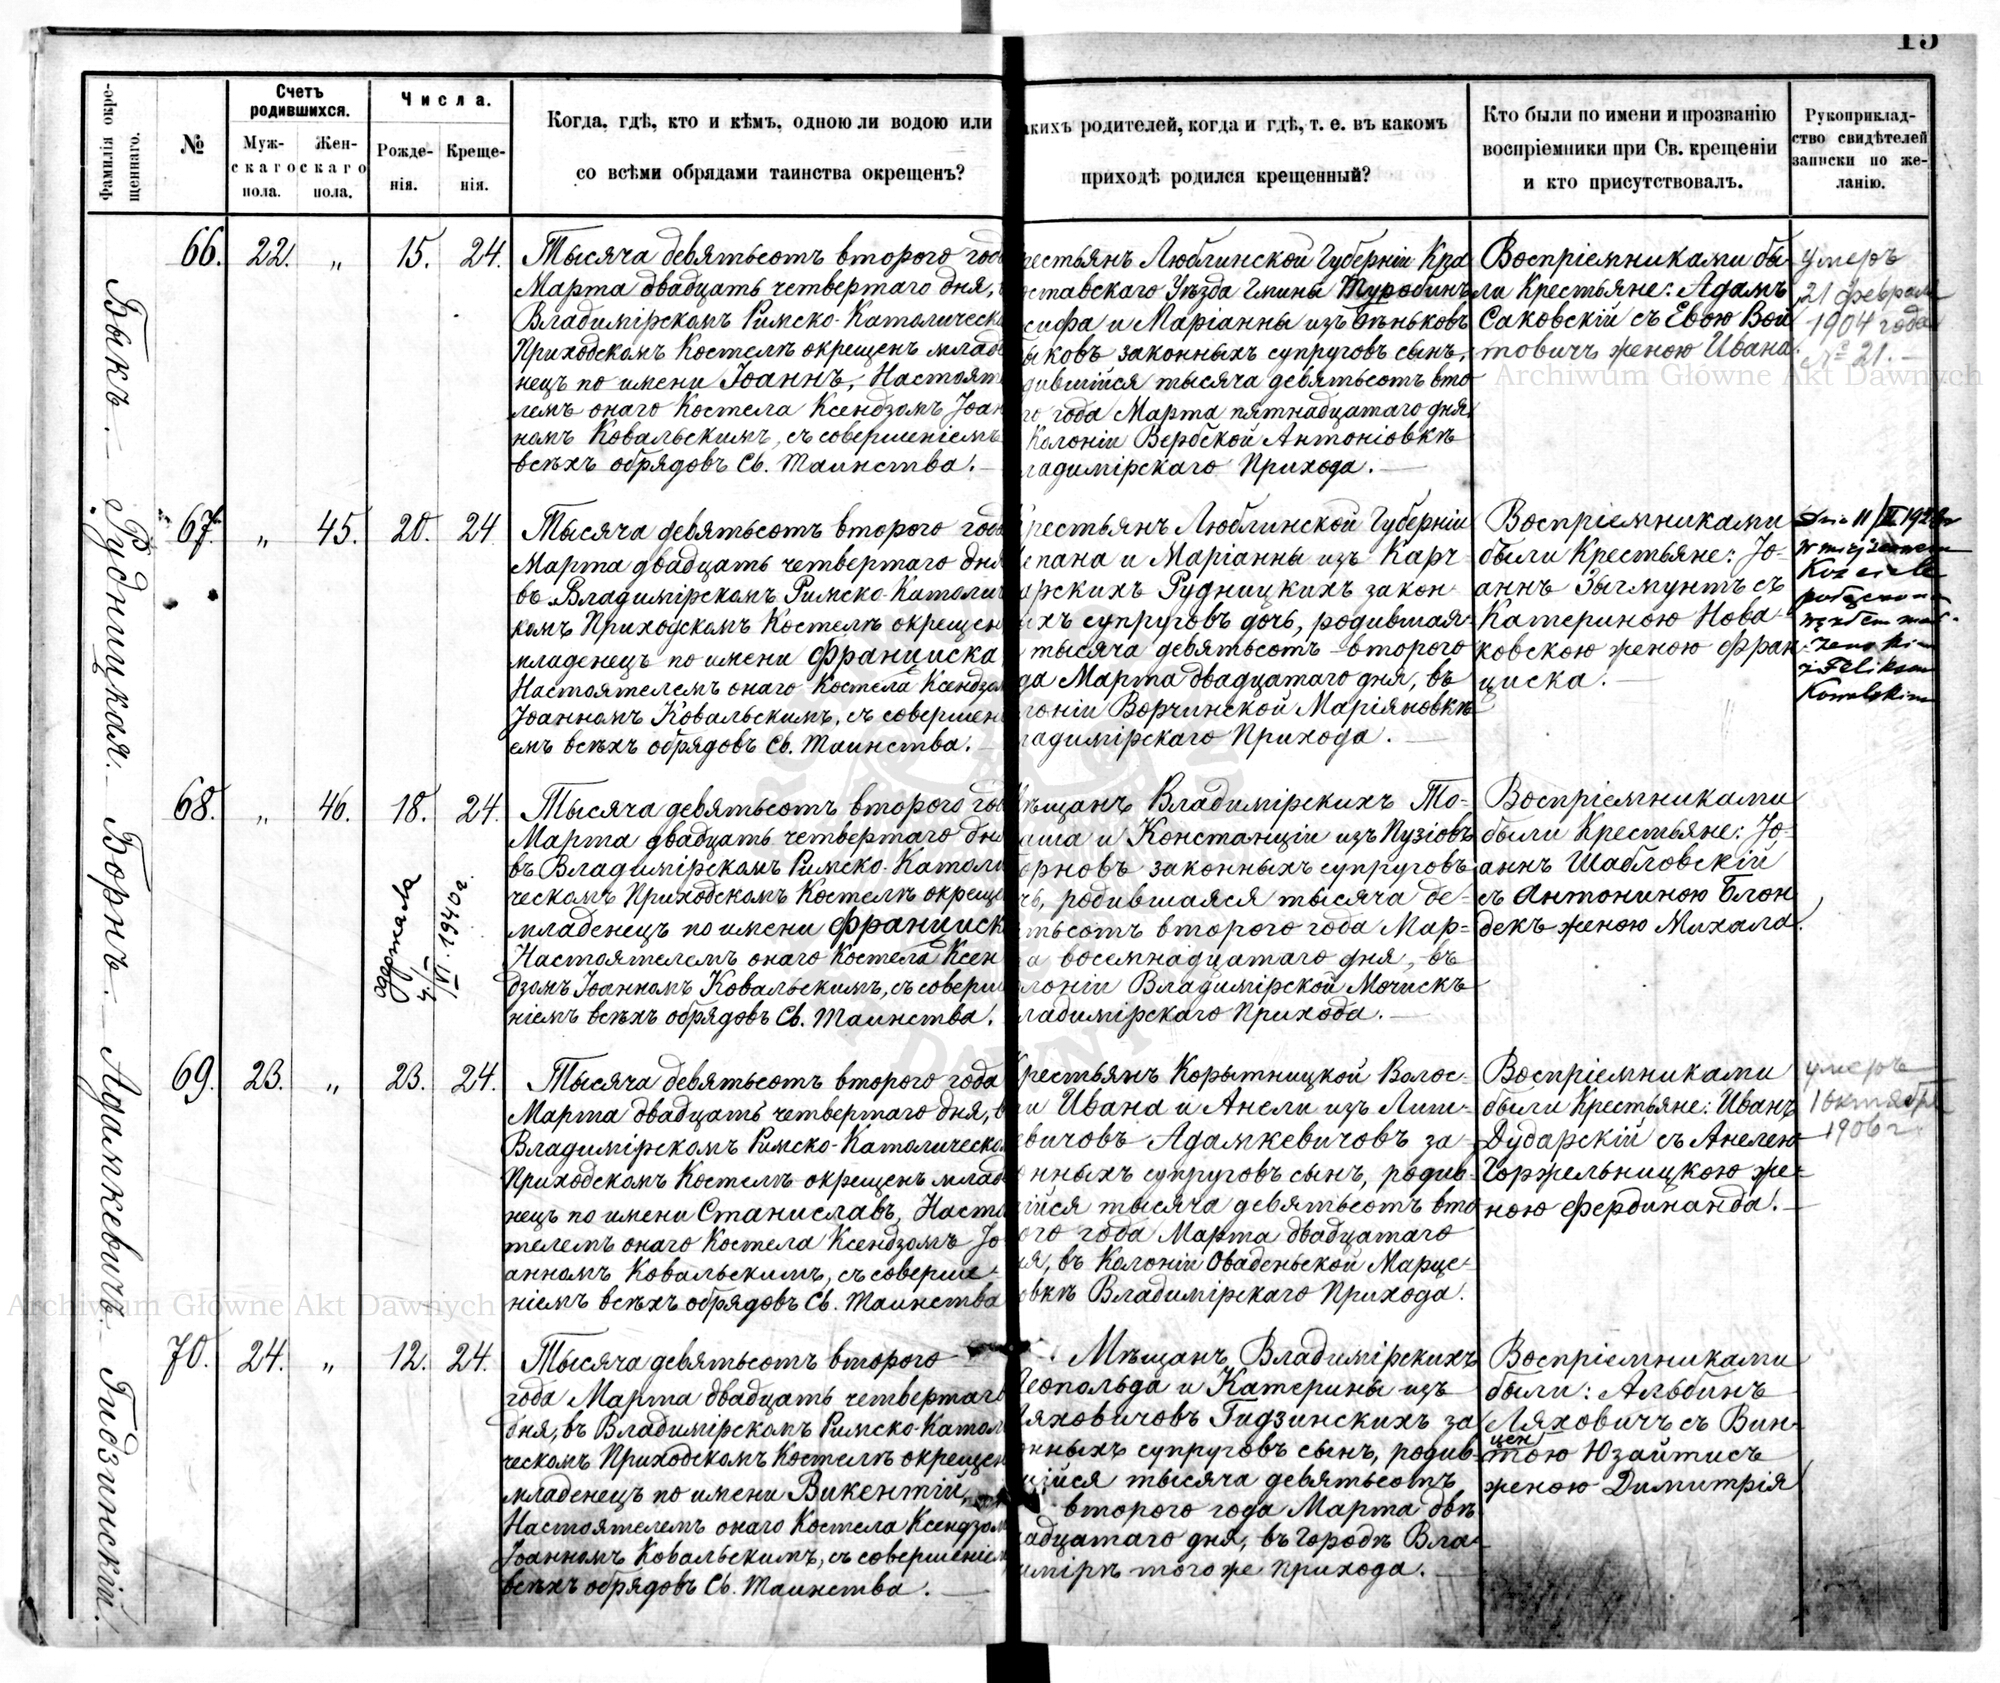 15
Фамилія окре-
щеннаго.
№
Счетъ
родившихся.
Муж-
скаго
пола.
Жен-
скаго
пола.
Числа.
Рожде-
нія.
Креще-
нія.
Когда, гдѣ, кто и кѣмъ, одною ли водою или
со всѣми обрядами таинства окрещенъ?
акихъ родителей, когда и гдѣ, т. е. въ какомъ
приходѣ родился крещенный?
Кто были по имени и прозванію
воспріемники при Св. крещеніи
и кто присутствовалъ.
Рукоприклад-
ство свидѣтелей
записки по же-
ланію.
Бокъ.
66. 22. „ 15. 24.
Тысяча девятьсотъ второго год
Марта двадцать четвертаго дня,
Владимірскомъ Римско-Католическ
Приходскомъ Костелѣ окрещенъ младе
нецъ по имени Іоаннъ, Настоят
лемъ онаго Костела Ксендзомъ Іоан
номъ Ковальскимъ, съ совершеніемъ
всѣхъ обрядовъ Св. Таинства.
рестьянъ Люблинской Губерніи Кра
ставскаго Уѣзда Гмины Туробинъ
сифа и Маріанны изъ Сѣньковъ
ыковъ законныхъ супруговъ сынъ,
дившійся тысяча девятьсотъ вто
го года Марта пятнадцатаго дня
Колоніи Вербской Антоніовкѣ
ладимірскаго Прихода.
Воспріемниками бы
ли Крестьяне: Адамъ
Саковскій съ Евою Вой
товичъ женою Ивана.
умеръ
21 февраля
1904 года
№ 21.
Рудницкая.
67. „ 45. 20. 24
Тысяча девятьсотъ второго год
Марта двадцать четвертаго дня
въ Владимірскомъ Римско-Католич
комъ Приходскомъ Костелѣ окрещен
младенецъ по имени Франциска
Настоятелемъ онаго Костела Ксендзом
Іоанномъ Ковальскимъ, съ совершен
емъ всѣхъ обрядовъ Св. Таинства.
рестьянъ Люблинской Губерніи
епана и Маріанны изъ Карч
арскихъ Рудницкихъ закон
ихъ супруговъ дочь, родившая
тысяча девятьсотъ второго
да Марта двадцатаго дня, въ
лоніи Ворчинской Маріяновкѣ
ладимірскаго Прихода.
Воспріемниками
были Крестьяне: Іо-
аннъ Зычмунтъ съ
Катериною Нова-
ковскою женою Фран
циска.
w miejscowem
Kościele
z Feliksem
Kowalskim
Борнъ.
68. „ 46. 18. 24.
одержала
VI. 1940 г.
Тысяча девятьсотъ второго год
Марта двадцать четвертаго дня
въ Владимірскомъ Римско-Католи
ческомъ Приходскомъ Костелѣ окреще
младенецъ по имени Франциск
Настоятелемъ онаго Костела Ксен
дзомъ Іоанномъ Ковальскимъ, съ соверш
ніемъ всѣхъ обрядовъ Св. Таинства.
ѣщанъ Владимірскихъ То-
аша и Констанціи изъ Пузіовъ
орновъ законныхъ супруговъ
чь, родившаяся тысяча де-
тьсотъ второго года Мар-
а восемнадцатаго дня, въ
лоніи Владимірской Мочискъ
ладимірскаго Прихода.
Воспріемниками
были Крестьяне: Іо-
аннъ Шабловскій
съ Антониною Блон
декъ женою Михала.
Адамкевичъ.
69. 23. „ 23. 24.
Тысяча девятьсотъ второго года
Марта двадцать четвертаго дня, в
Владимірскомъ Римско-Католическо
Приходскомъ Костелѣ окрещенъ младе
нецъ по имени Станиславъ, Насто
телемъ онаго Костела Ксендзомъ Іо
анномъ Ковальскимъ, съ соверше-
ніемъ всѣхъ обрядовъ Св. Таинства
рестьянъ Корытницкой Волос-
и Ивана и Анели изъ Лит-
евичовъ Адамкевичовъ за-
нныхъ супруговъ сынъ, родив-
ійся тысяча девятьсотъ вто
ого года Марта двадцатаго
я, въ Колоніи Оваденьской Марце-
овкѣ Владимірскаго Прихода.
Воспріемниками
были Крестьяне: Иванъ
Дударскій съ Анелею
Горжельницкою же-
ною Фердинанда.
умеръ
1 октября
1906 г.
Гидзинскій.
70. 24. „ 12. 24.
Тысяча девятьсотъ второго
года Марта двадцать четвертаго
дня, въ Владимірскомъ Римско-Катол
ческомъ Приходскомъ Костелѣ окрещен
младенецъ по имени Викентій,
Настоятелемъ онаго Костела Ксендзом
Іоанномъ Ковальскимъ, съ совершеніем
всѣхъ обрядовъ Св. Таинства.
Мѣщанъ Владимірскихъ
Леопольда и Катерины изъ
Ляховичовъ Гидзинскихъ за
онныхъ супруговъ сынъ, родив-
шійся тысяча девятьсотъ
второго года Марта двѣ
надцатаго дня, въ городѣ Вла-
димірѣ того же прихода.
Воспріемниками
были: Альбинъ
Ляховичъ съ Вин-
цен
тою Юзайтисъ
женою Димитрія
Archiwum Główne Akt Dawnych
Archiwum Główne Akt Dawnych